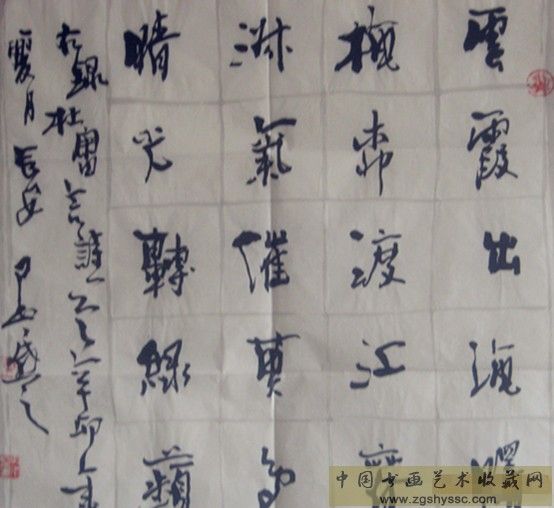 雲霞出海曙
梅柳渡江春
淑氣催黃鳥
晴光轉綠蘋
右録杜審言詩 辛卯
夏月長安
中国书画艺术收藏网
www.zgshyssc.com